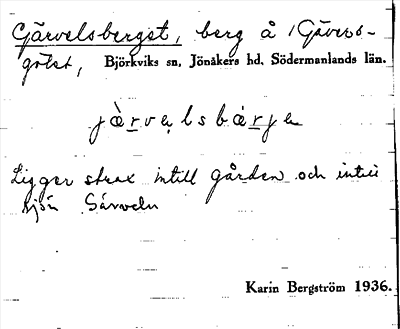 Gärvelsberget, berg å
Björkviks sn, Jönåkers hd, Södermanlands län.
jàrvelsbàrje
Ligger strax intill gården och intill
sjön
Karin Bergström 1936.